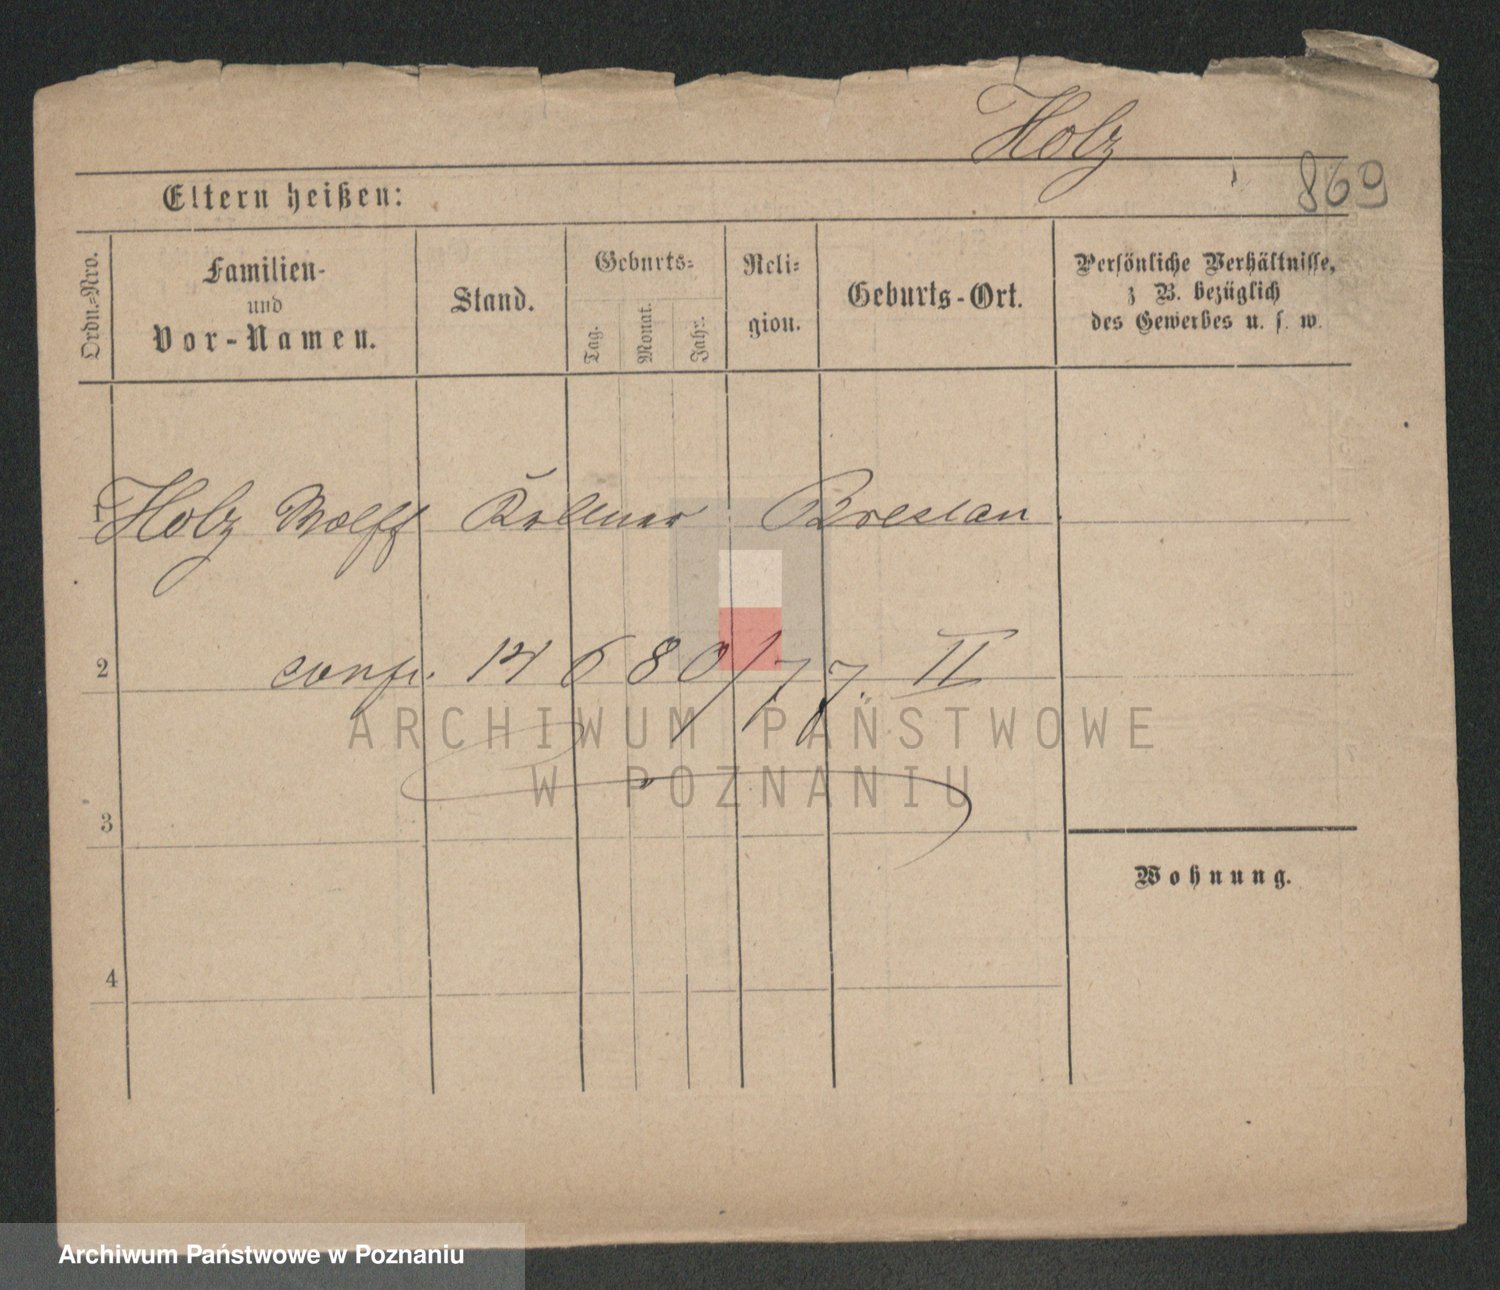 Holz
869
Eltern heißen:
Ordn.-Nro.
Familien-
und
Vor-Namen.
Stand.
Geburts-
Tag.
Monat.
Jahr.
Reli-
gion.
Geburts-Ort.
Persönliche Verhältnisse,
z B. bezüglich
des Gewerbes u. s. w.
1 Holz Wolff Kellner Breslau
2 confr. 14680/77. II
ARCHIWUM PAŃSTWOWE
W POZNANIU
3
Wohnung.
4
Archiwum Państwowe w Poznaniu